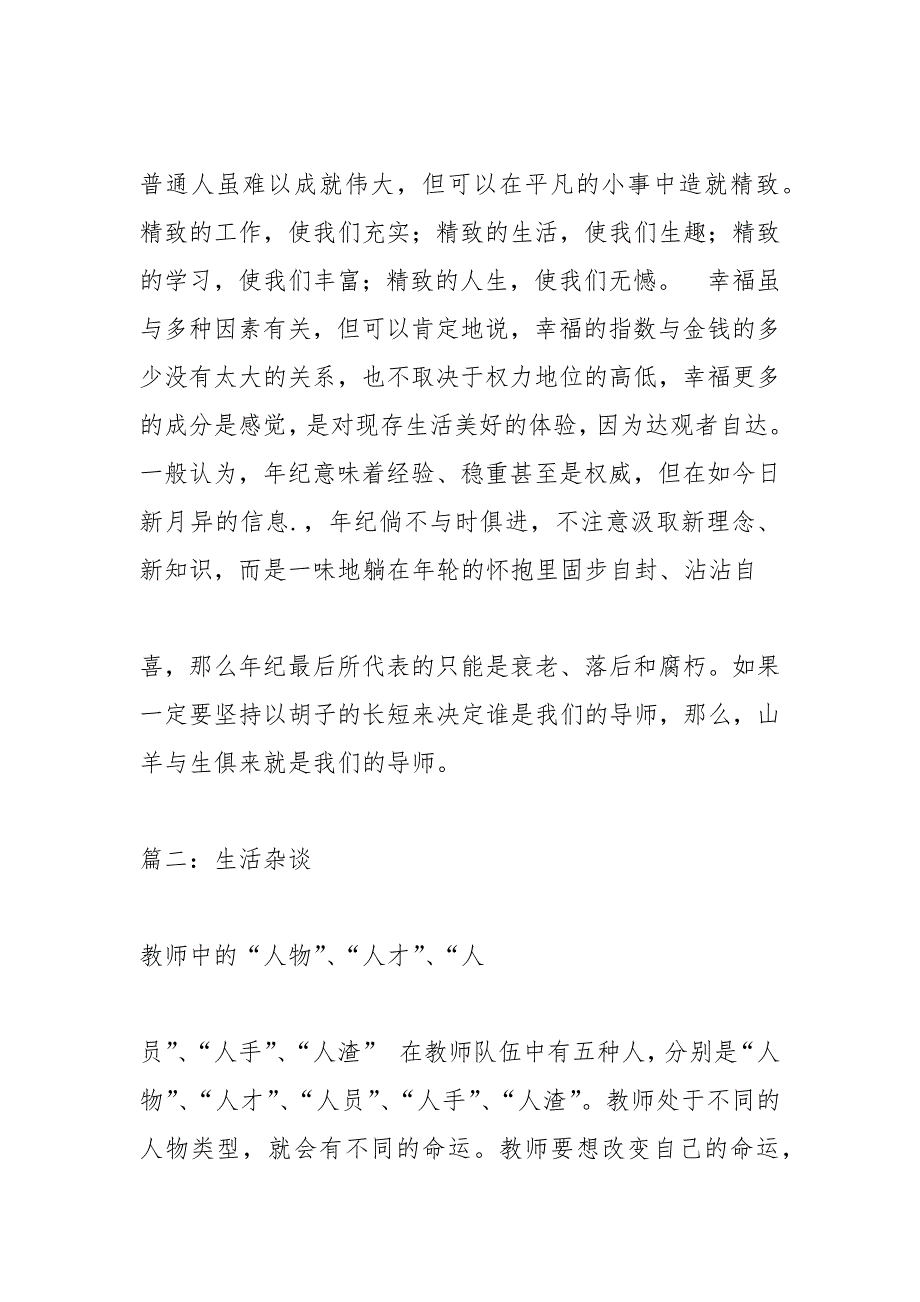 普通人虽难以成就伟大，但可以在平凡的小事中造就精致。
精致的工作，使我们充实；精致的生活，使我们生趣；精致
的学习，使我们丰富；精致的人生，使我们无憾。　幸福虽
与多种因素有关，但可以肯定地说，幸福的指数与金钱的多
少没有太大的关系，也不取决于权力地位的高低，幸福更多
的成分是感觉，是对现存生活美好的体验，因为达观者自达。
一般认为，年纪意味着经验、稳重甚至是权威，但在如今日
新月异的信息.，年纪倘不与时俱进，不注意汲取新理念、
新知识，而是一味地躺在年轮的怀抱里固步自封、沾沾自
喜，那么年纪最后所代表的只能是衰老、落后和腐朽。如果
一定要坚持以胡子的长短来决定谁是我们的导师，那么，山
羊与生俱来就是我们的导师。
篇二：生活杂谈
教师中的“人物”、“人才”、“人
员”、“人手”、“人渣” 在教师队伍中有五种人，分别是“人
物”、“人才”、“人员”、“人手”、“人渣”。教师处于不同的
人物类型，就会有不同的命运。教师要想改变自己的命运，